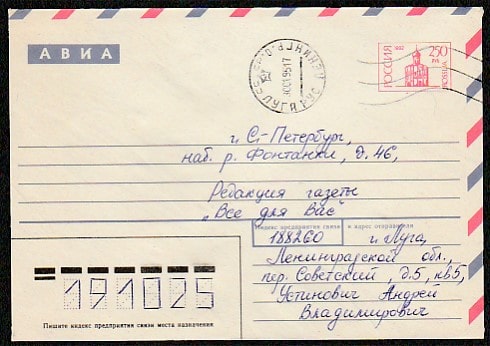 АВИА
РОССИЯ 1992
250
РУБ
ROSSIJA
г. С-Петербург,
наб. р. Фонтанки, д. 46,
Редакция газеты
"Все для Вас"
Индекс предприятия связи и адрес отправителя
188260 г. Луга,
Ленинградской обл.,
пер. Советский, д.5, кв5,
Устинович Андрей
Владимирович
191025
Пишите индекс предприятия связи места назначения